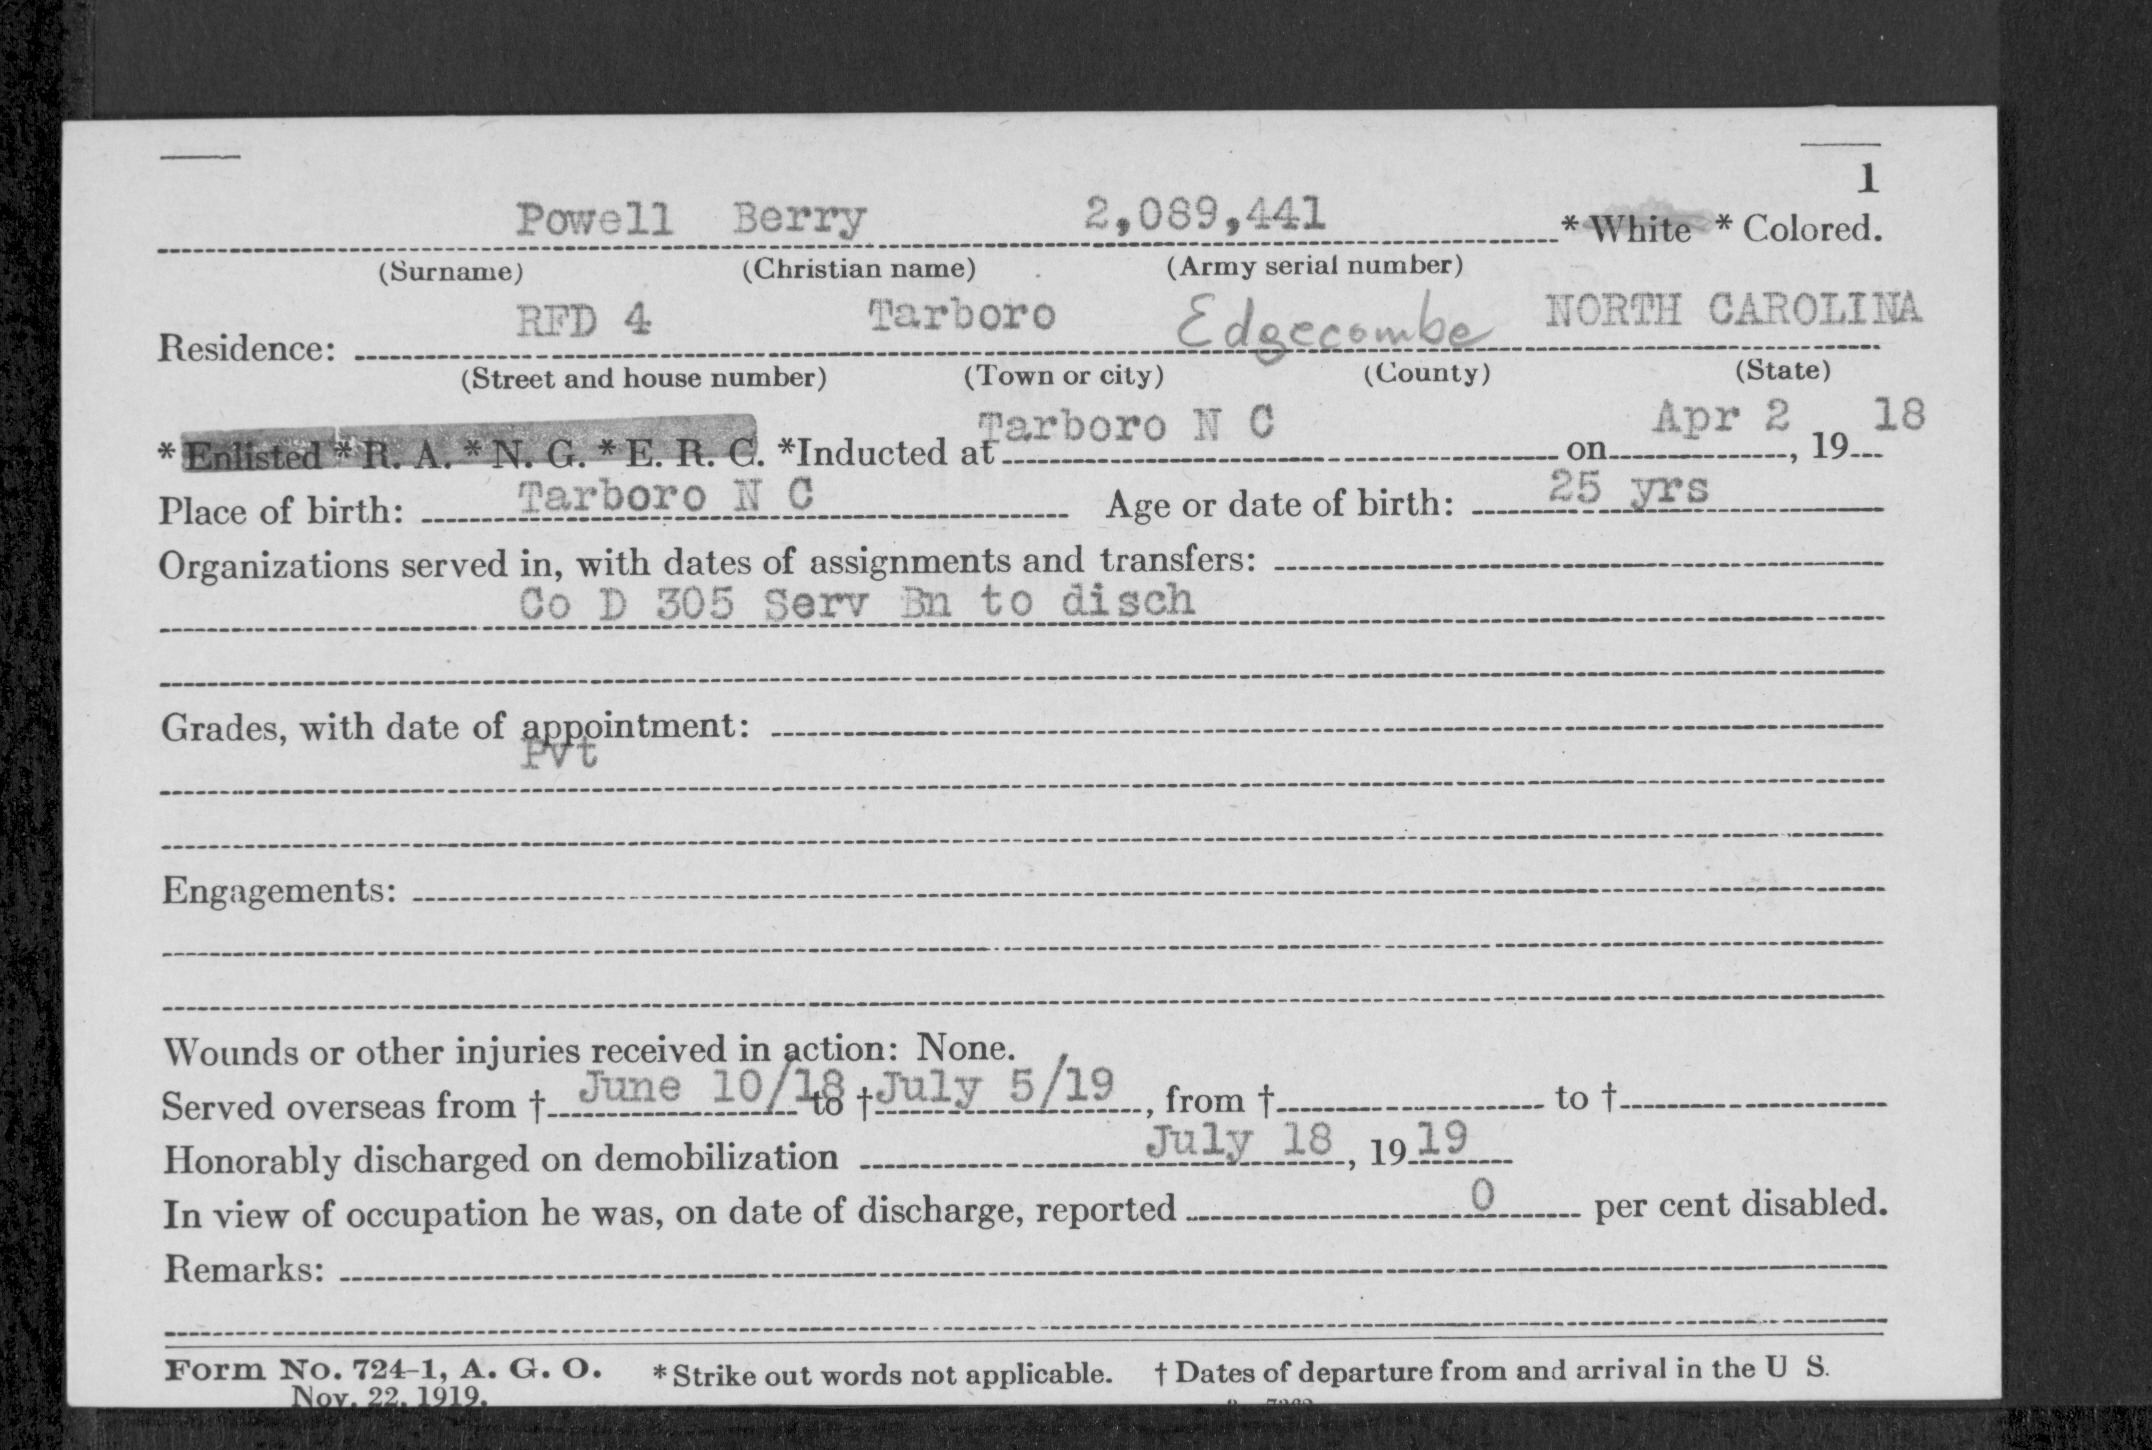 1
Powell Berry 2,089,441 * White * Colored.
(Surname) (Christian name) (Army serial number)
RFD 4 Tarboro Edgecombe NORTH CAROLINA
Residence:
(Street and house number) (Town or city) (County) (State)
* Enlisted * R. A. * N. G. * E. R. C. *Inducted at Tarboro N C on Apr 2, 19 18
Place of birth: Tarboro N C Age or date of birth: 25 yrs
Organizations served in, with dates of assignments and transfers:
Co D 305 Serv Bn to disch
Grades, with date of appointment:
Pvt
Engagements:
Wounds or other injuries received in action: None.
Served overseas from † June 10/18 to † July 5/19, from † to †
Honorably discharged on demobilization July 18, 19 19
In view of occupation he was, on date of discharge, reported 0 per cent disabled.
Remarks:
Form No. 724-1, A. G. O. * Strike out words not applicable. † Dates of departure from and arrival in the U S.
Nov. 22, 1919.